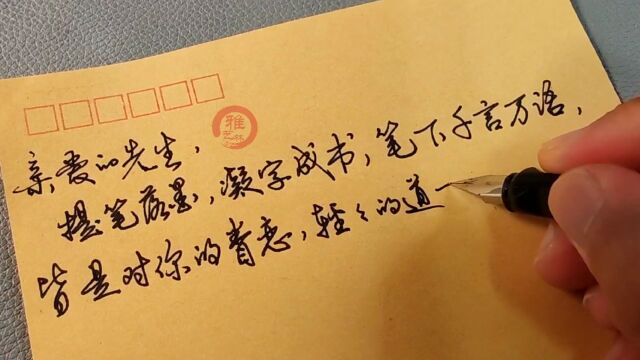 雅
艺林
亲爱的先生，
提笔落墨，凝字成书，笔下千言万语，
皆是对你的眷恋，轻々的道一